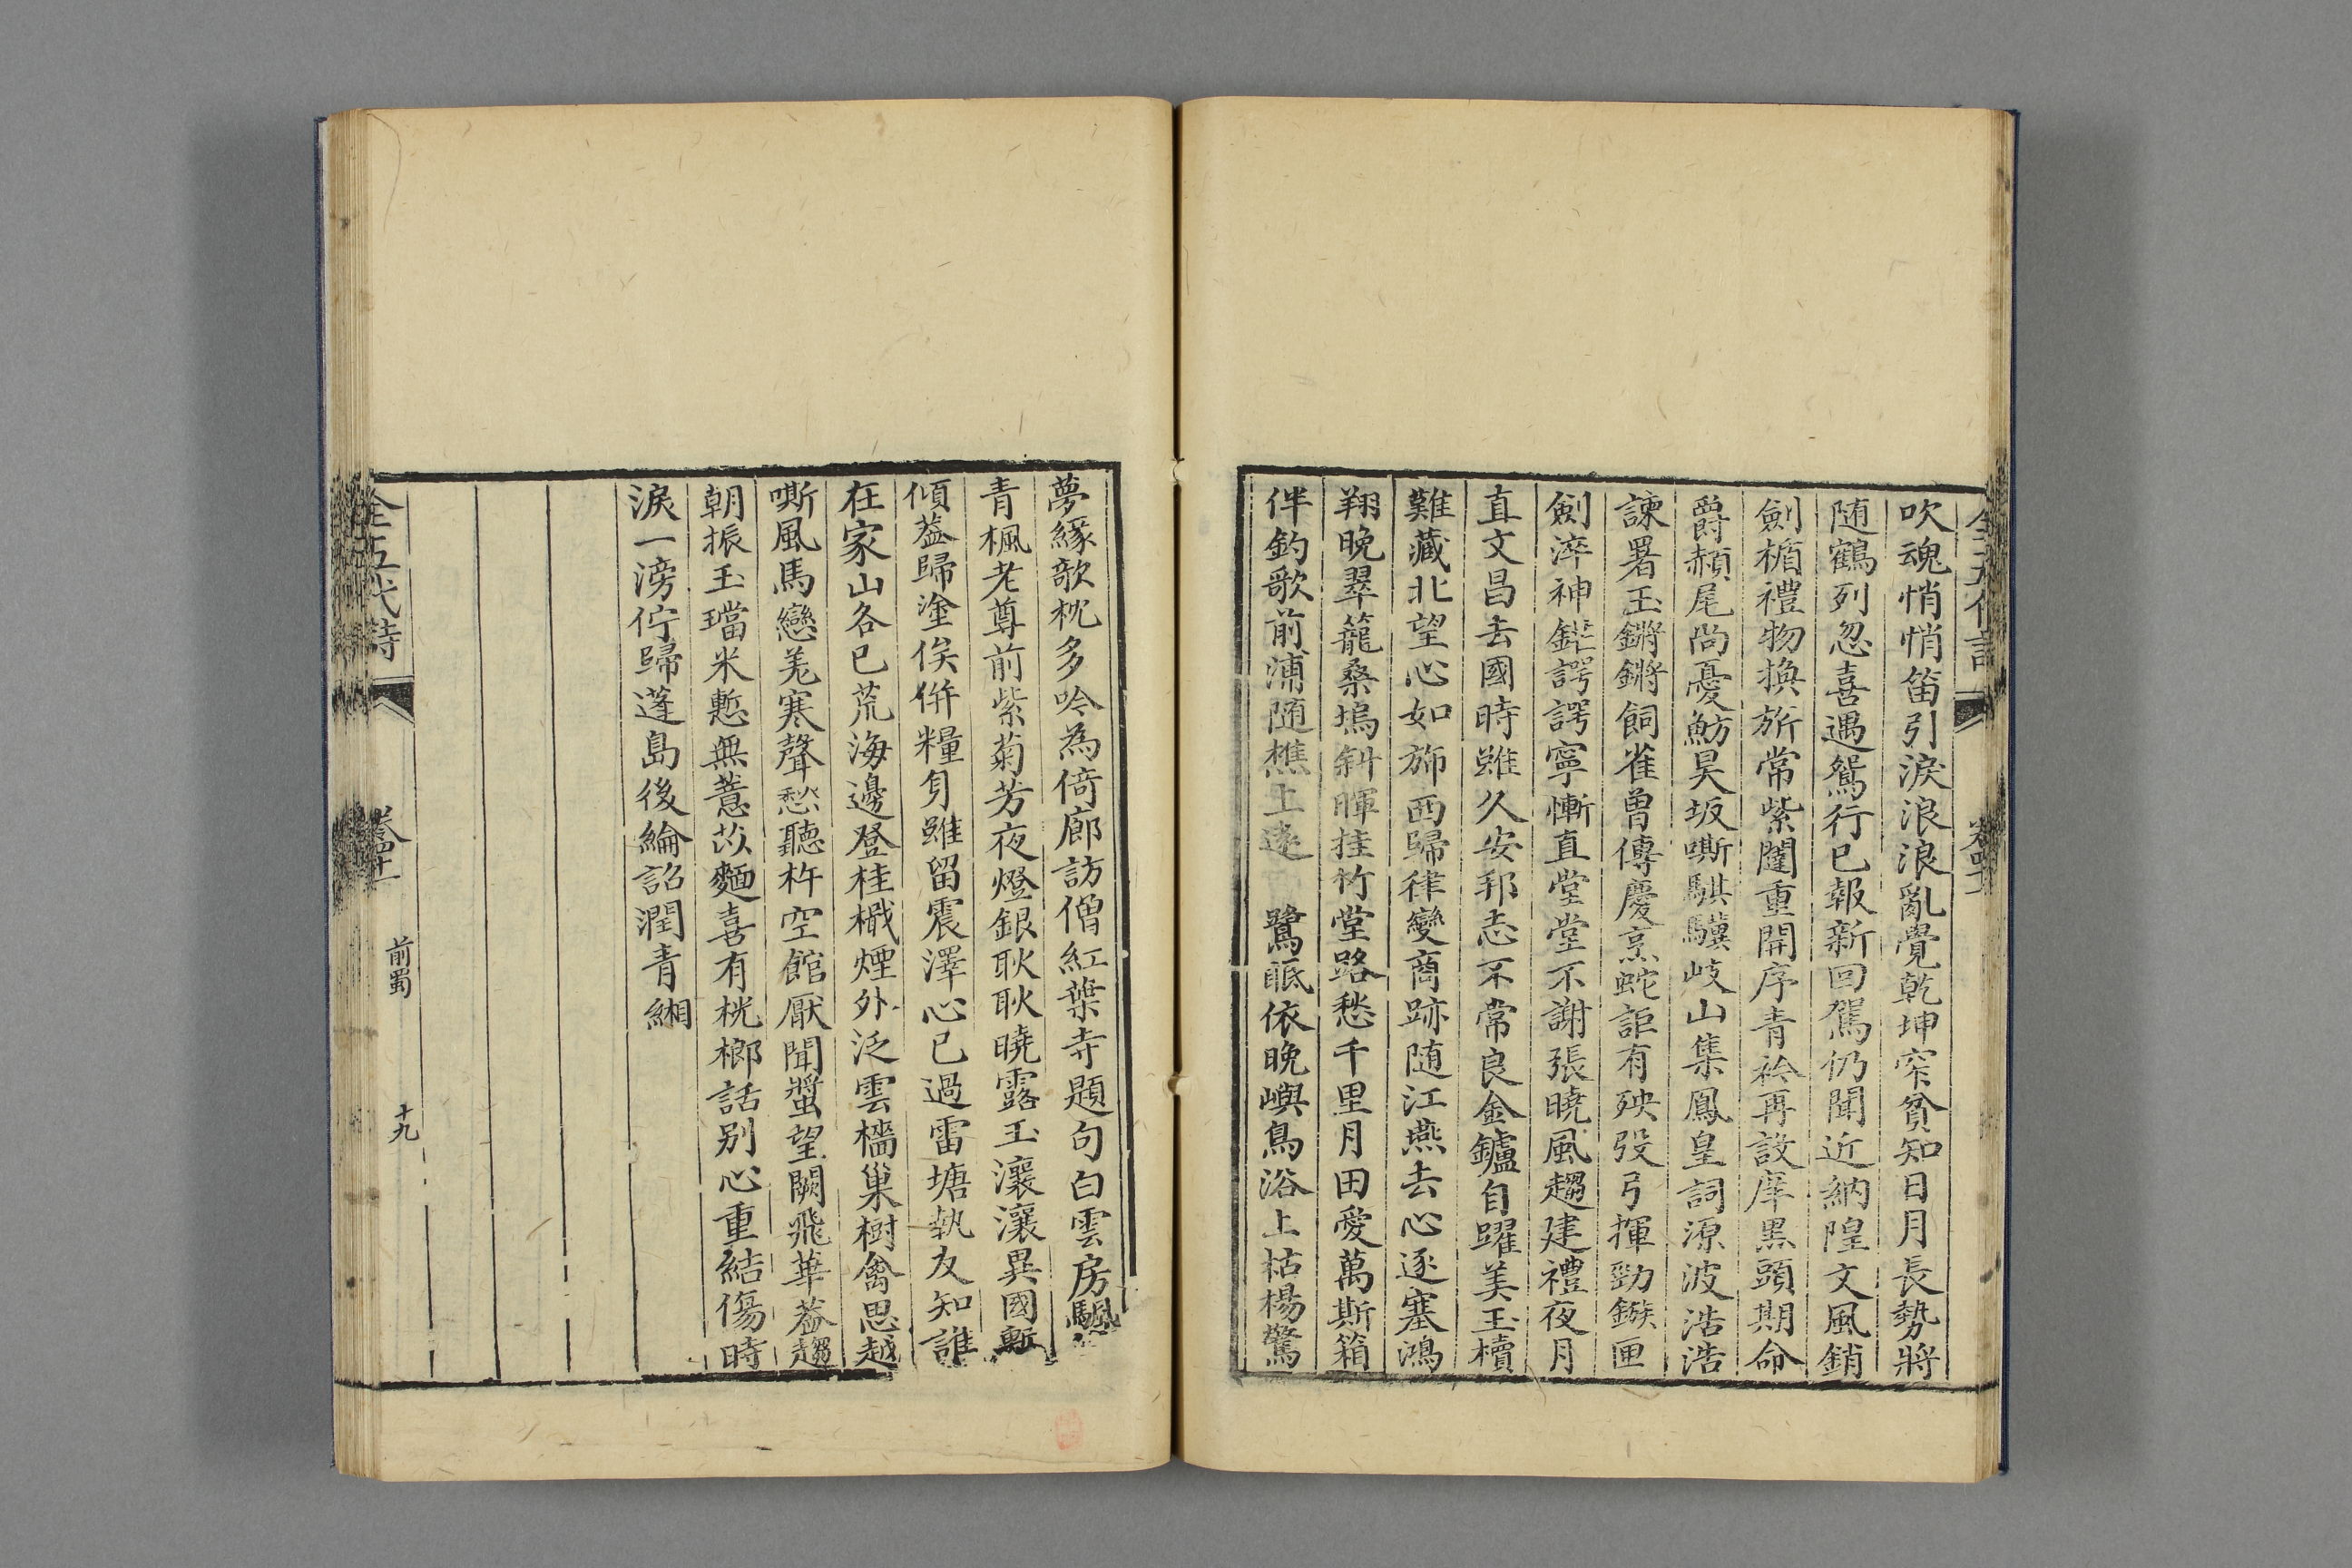 吹魂悄悄笛引淚浪浪亂覺乾坤窄貧知日月長勢將
随鶴列忽喜遇鴛行已報新回駕仍聞近納隍文風銷
劍楯禮物換旂常紫闥重開序青衿再設庠黒頭期命
爵赬尾尚憂魴昊坂嘶騏驥岐山集鳳皇詞源波浩浩
諫署玉鏘鏘飼雀曽傳慶烹蛇詎有殃弢弓揮勁鏃匣
劍淬神鋩諤諤寧慚直堂堂不謝張曉風趨建禮夜月
直文昌去國時雖久安邦志不常良金鑪自躍美玉櫝
難藏北望心如斾西歸律變商跡随江燕去心逐塞鴻
翔晚翠籠桑塢斜暉挂竹堂路愁千里月田愛萬斯箱
伴釣歌前浦随樵上遠鷺眠依晚嶼鳥浴上枯楊驚
夢緣欹枕多吟為倚廊訪僧紅葉寺題句白雲房
青楓老尊前紫菊芳夜燈銀耿耿曉露玉瀼瀼異國暫
傾葢歸塗俟併糧身雖留震澤心已過雷塘執友知誰
在家山各已荒海邊登桂檝煙外泛雲檣巢樹禽思越
嘶風馬戀羌寒聲愁聽杵空館厭聞螿望闕飛華葢趨
朝振玉璫米慙無薏苡麵喜有桄榔話别心重結傷時
淚一滂佇歸蓬島後綸詔潤青緗
全五代詩
前蜀
十九